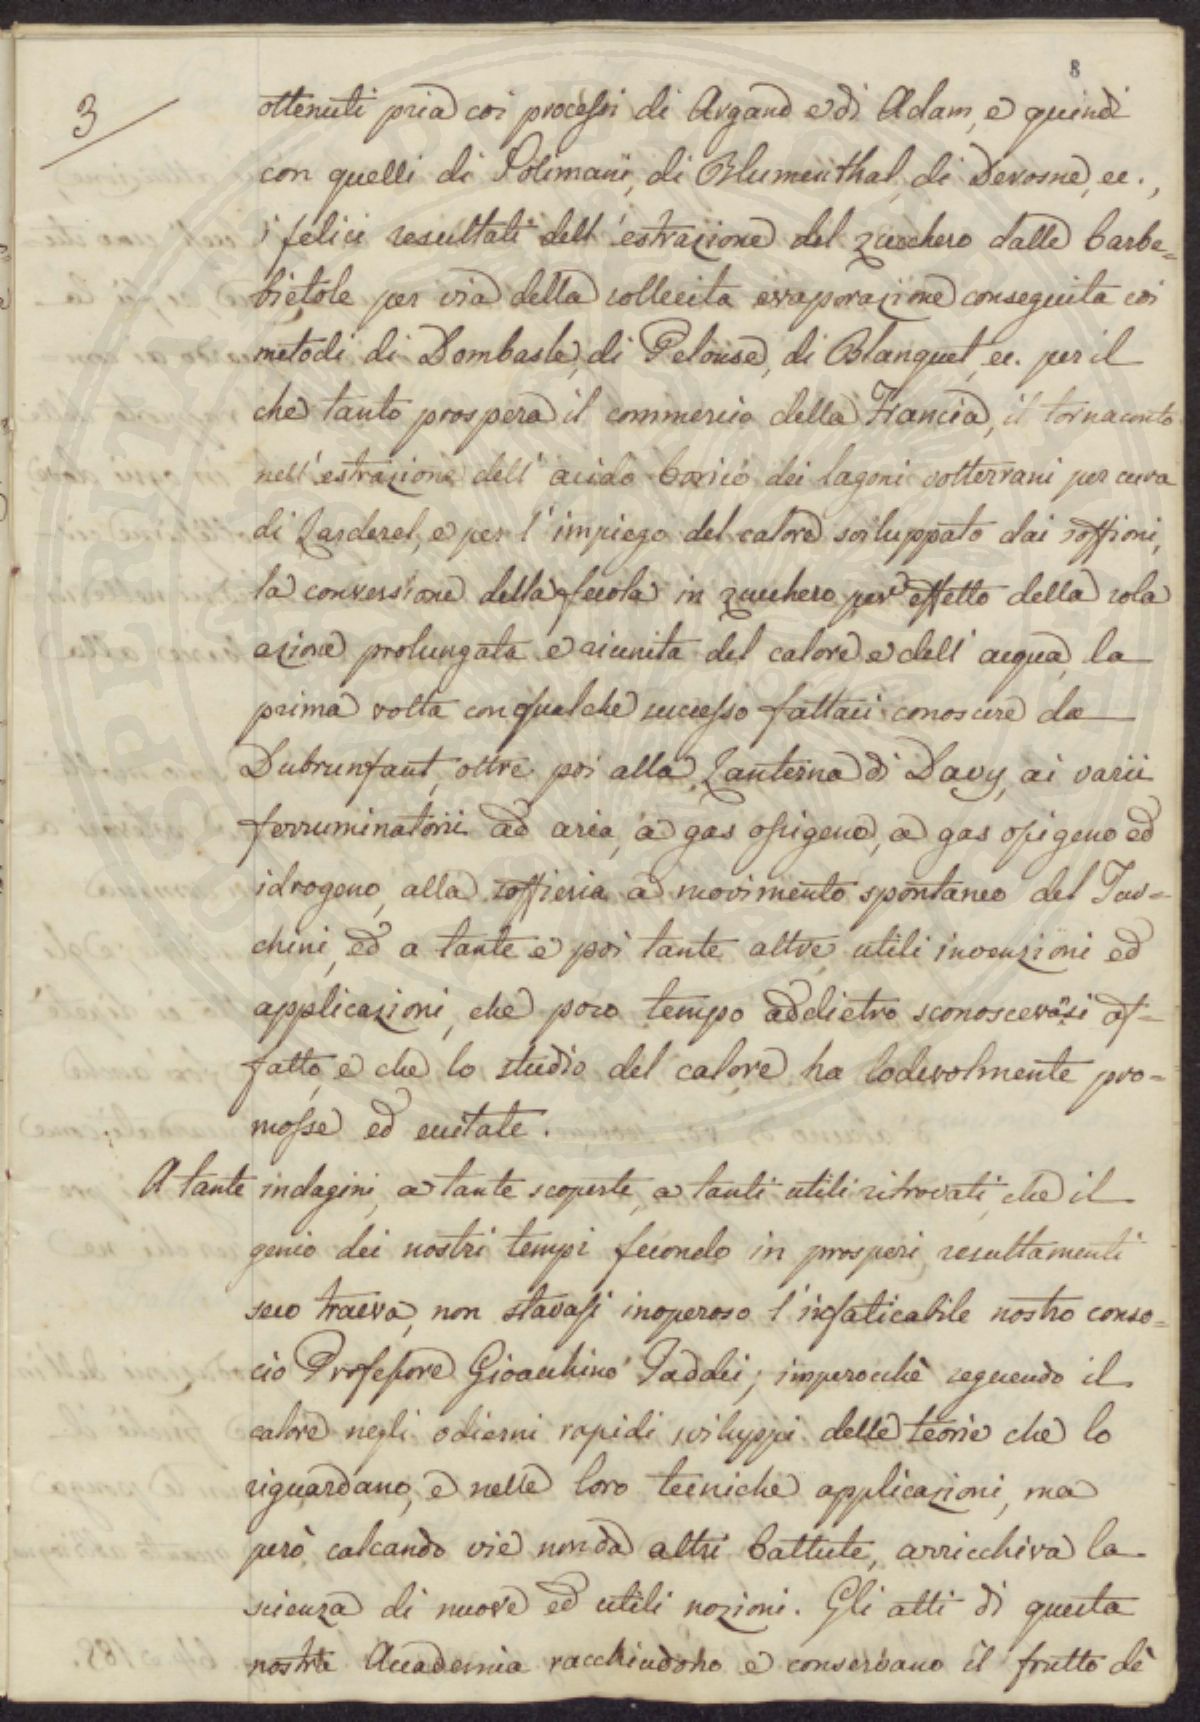 8
3
ottenuti pria coi processi di Argand e di Adam, e quindi
con quelli di Solimani, di Blumenthal, di Derosne, ec.,
i felici resultati dell'estrazione del zucchero dalle barba-
bietole per via della sollecita evaporazione conseguita coi
metodi di Dombasle, di Pelouse, di Blanquet, ec. per il
che tanto prospera il commercio della Francia, il tornaconto
nell'estrazione dell'acido borico dei lagoni volterrani per cura
di Larderel, e per l'impiego del calore sviluppato dai soffioni,
la conversione della fecola in zucchero per effetto della sola
azione prolungata e riunita del calore e dell'acqua, la
prima volta con qualche successo fattaci conoscere da
Dubrunfaut, oltre poi alla Lanterna di Davy, ai varii
ferruminatorii ad aria, a gas ossigeno, a gas ossigeno ed
idrogeno, alla soffieria a movimento spontaneo del Tav-
chini, ed a tante e poi tante altre utili invenzioni ed
applicazioni, che poco tempo addietro sconoscevasi af-
fatto, e che lo studio del calore ha lodevolmente pro-
mosse ed eccitate.
A tante indagini, a tante scoperte, a tanti utili ritrovati, che il
genio dei nostri tempi fecondo in prosperi resultamenti
seco traeva, non stavasi inoperoso l'infaticabile nostro conso-
cio Professore Gioacchino Taddei; imperocchè seguendo il
calore negli odierni rapidi sviluppi delle teorie che lo
riguardano, e nelle loro tecniche applicazioni, ma
però calcando vie non da altri battute, arricchiva la
scienza di nuove ed utili nozioni. Gli atti di questa
nostra Accademia racchiudono e conservano il frutto de'